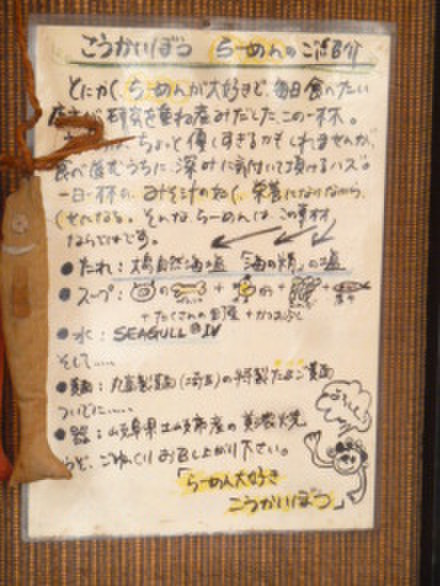 ごうかいぼう らーめんのご紹介
とにかく、らーめんが大好きで、毎日食べたい
店主が研究を重ね産みだした、この一杯。
ちょっと優しすぎるかもしれませんが、
食べ進むうちに深みに気付いて頂けるハズ。
一日一杯のみそ汁のねぎ、栄養になりながら、
くせになる。そんな、らーめんは、この素材
ならではです。
●たれ:大島自然海塩「海の精」の塩
●スープ: の + の + +
+たくさんの +かつおぶし
●水:SEAGULL Ⅳ
そして.....
●麺: 製麺(埼玉)の特製たまご麺
ついでに.....
●器:岐阜県土岐市産の美濃焼
ど、ごゆっくりお召し上がり下さい。
よろしく
「らーめん大好き
ごうかいぼう」